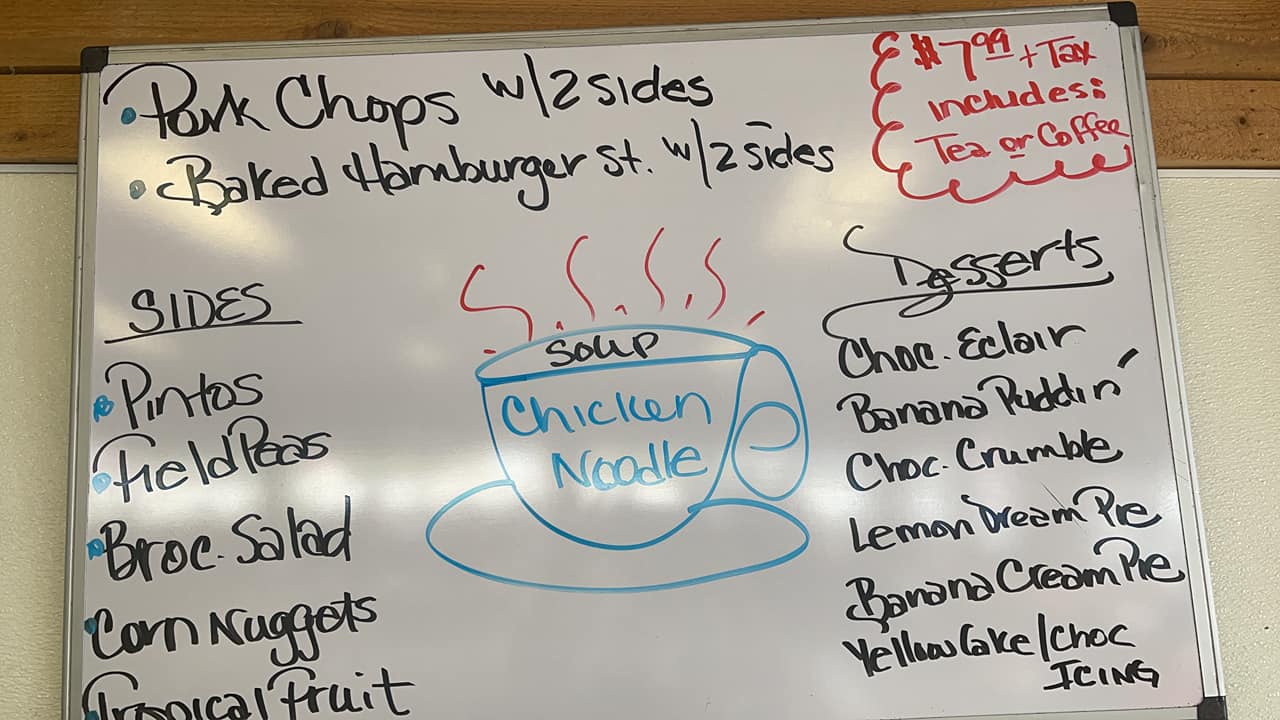 Pork Chops w/2 sides
Baked Hamburger St. w/2 sides
$7.99 + Tax
includes:
Tea or Coffee
SIDES
Pintos
Field Peas
Broc. Salad
Corn Nuggets
Tropical Fruit
Soup
Chicken
Noodle
Desserts
Choc. Eclair
Banana Puddin'
Choc. Crumble
Lemon Dream Pie
Banana Cream Pie
Yellow Cake/Choc
ICING